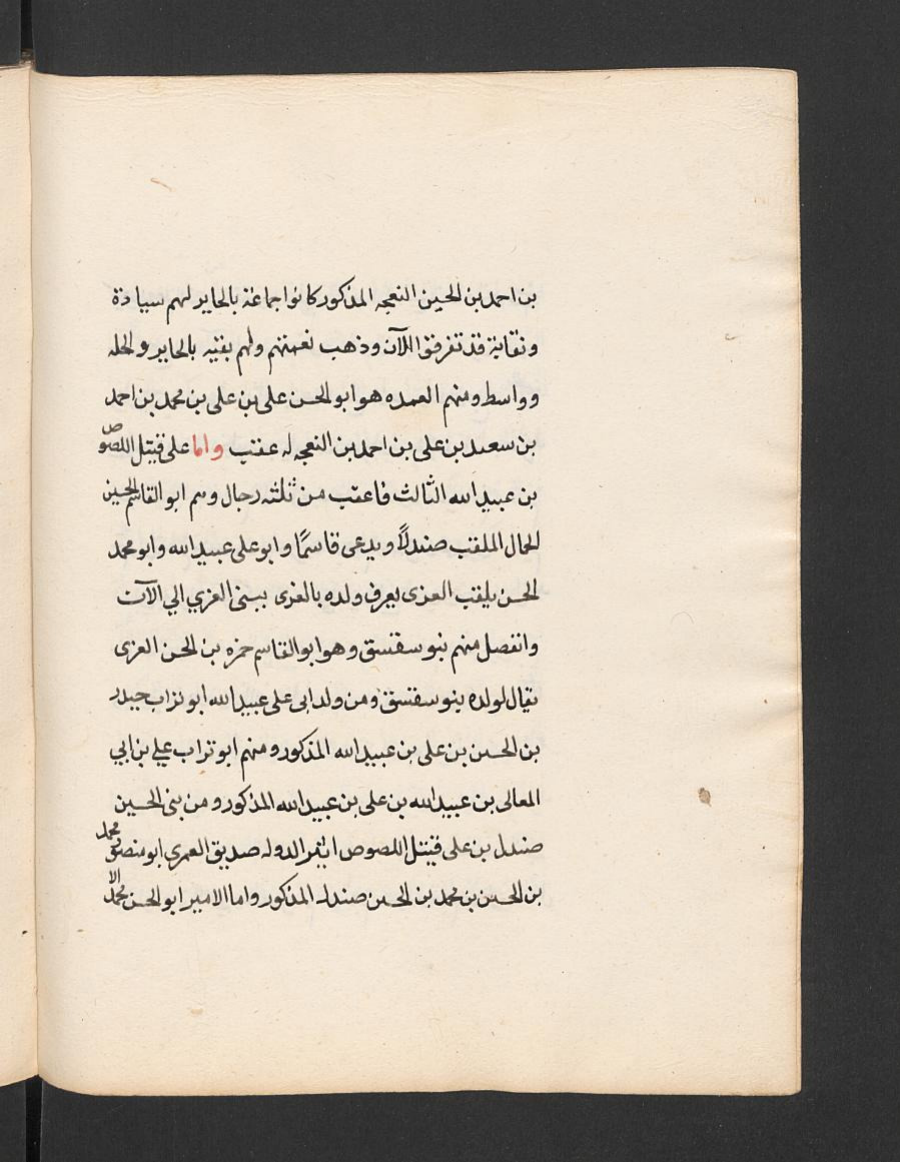 بن احمد بن الحسين النعجه المذكور كانوا جماعة بالحاير لهم سيادة
ونقابة قد تفرقوا الآن وذهب نعمتهم ولهم بقيه بالحاير والحله
وواسط ومنهم العمده هو ابو الحسن علي بن علي بن محمد بن احمد
بن سعيد بن علي بن احمد بن النعجه له عقب واما علي قتيل اللصوص
بن عبيد الله الثالث فاعقب من ثلثه رجال وهم ابو القاسم الحسين
الحال الملقب صندلاً ويدعى قاسمًا وابو علي عبيد الله وابو محمد
الحسن يلقب العزى يعرف ولده بالعزى ببنى العزي الي الآن
وانفصل منهم بنو سقسق وهو ابو القاسم حمزه بن الحسن العزى
يقال لولده بنو سقسق ومن ولد ابى على عبيد الله ابو تراب حيدر
بن الحسين بن على بن عبيد الله المذكور ومنهم ابو تراب علي بن ابي
المعالى بن عبيد الله بن على بن عبيد الله المذكور ومن بنى الحسين
صندل بن على قتيل اللصوص اثير الدوله صديق العمري ابو منصور محمد
بن الحسين بن محمد بن الحسين صندل المذكور واما الامير ابو الحسن محمد الا